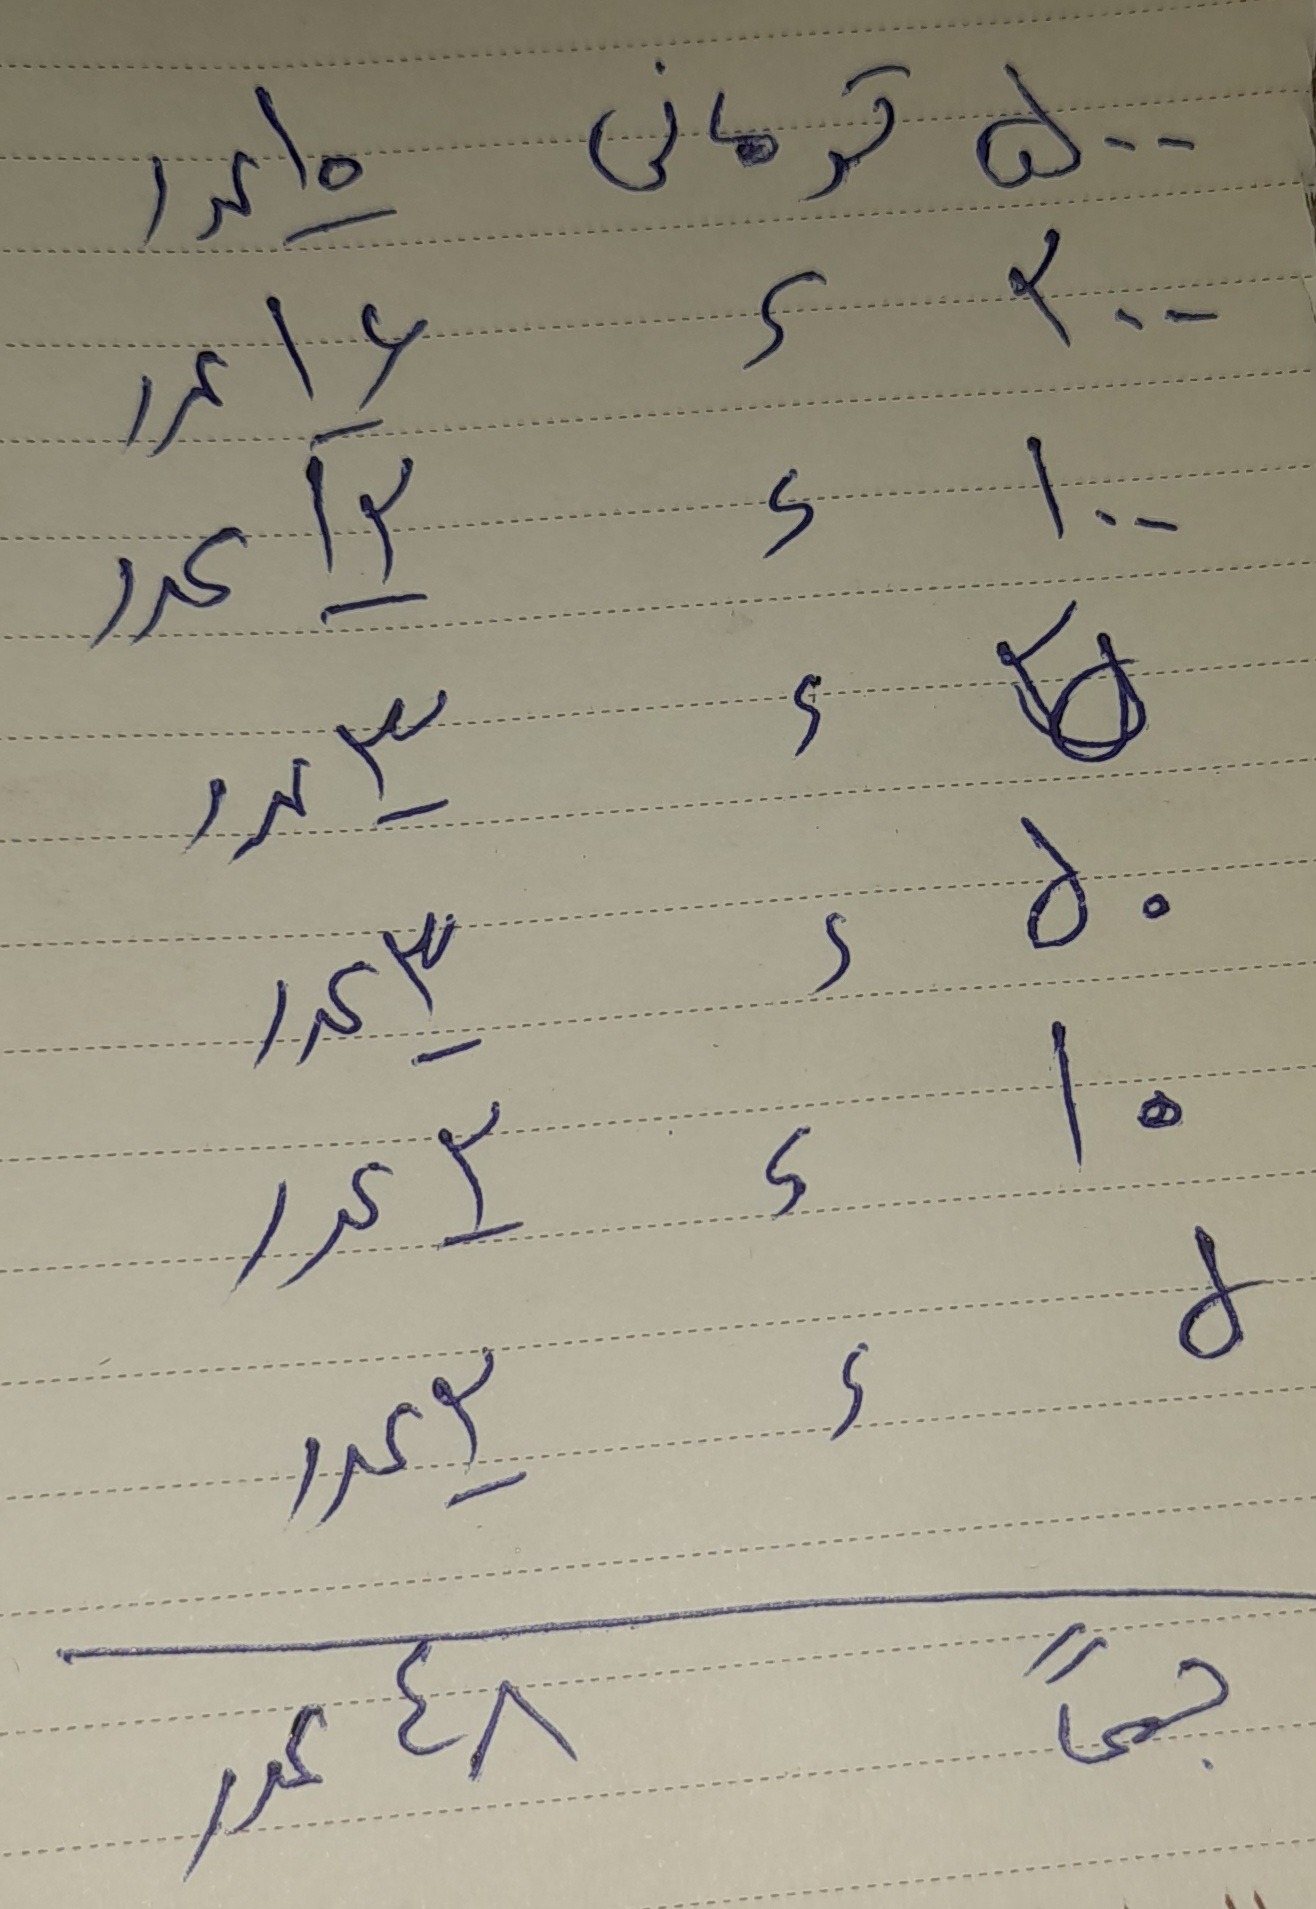 ۵۰۰ تومانی ۱۰ عدد
۲۰۰ 〃 ۱۶ عدد
۱۰۰ 〃 ۱۲ عدد
۲۵ 〃 ۳ عدد
۵۰ 〃 ۳ عدد
۱۰ 〃 ۲ عدد
۵ 〃 ۲ عدد
جمعاً ۴۸ عدد